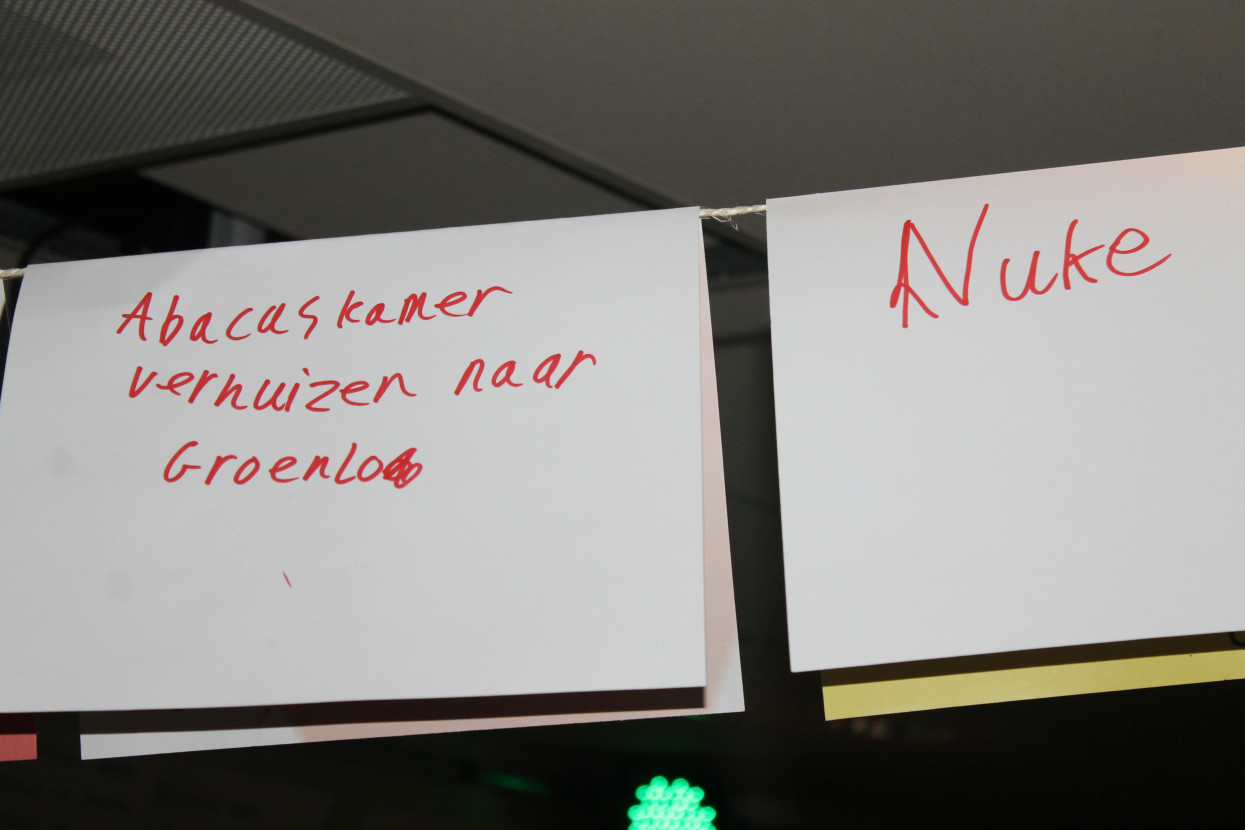 Abacuskamer
verhuizen naar
Groenlo
Nuke